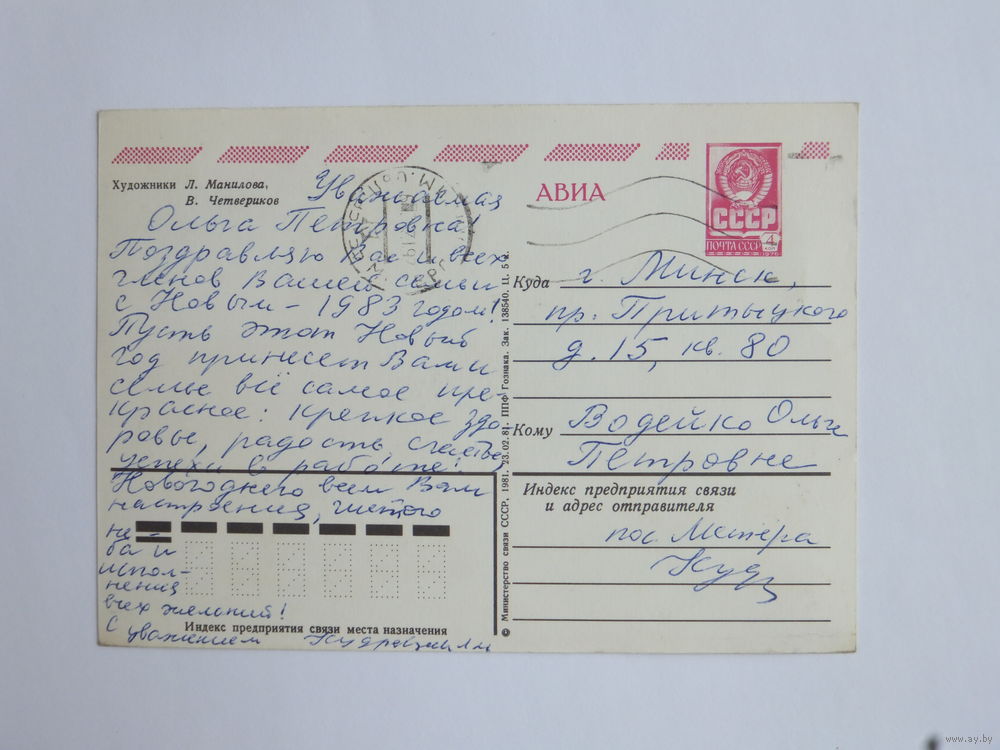 Художники Л. Манилова,
В. Четвериков
Уважаемая
Ольга Петровна!
Поздравляю Вас и всех
членов Вашей семьи
с Новым - 1983 годом!
Пусть этот Новый
год принесет Вам и
семье всё самое пре-
красное: крепкое здо-
ровье, радость, счастье,
успехи в работе!
Новогоднего всем Вам
настроения, чистого
не-
ба и
испол-
нения
всех желаний!
С уважением
Индекс предприятия связи места назначения
© Министерство связи СССР. 1981. 23.02.81. ППФ Гознака. Зак. 138540. Ц. 5 к.
АВИА
СССР
ПОЧТА СССР
4
КОП
Куда г. Минск,
пр. Притыцкого
д. 15, кв. 80
Кому Водейко Ольге
Петровне
Индекс предприятия связи
и адрес отправителя
пос.
www.ay.by